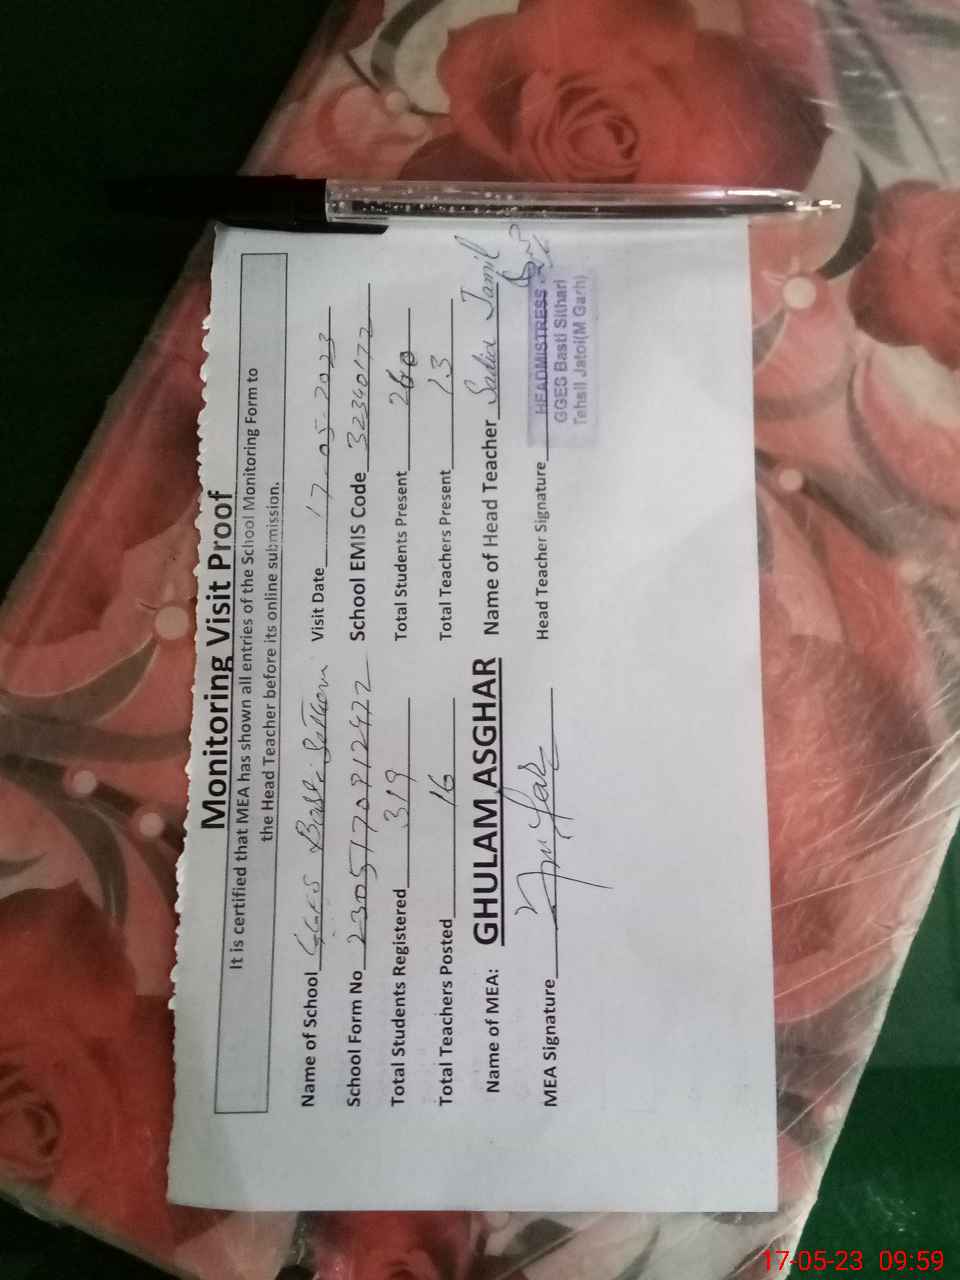 Monitoring Visit Proof
It is certified that MEA has shown all entries of the School Monitoring Form to
the Head Teacher before its online submission.
Name of School GGES Basti Visit Date 17-05-2023
School Form No School EMIS Code 32340172
Total Students Registered 319 Total Students Present 260
Total Teachers Posted 16 Total Teachers Present 13
Name of MEA: GHULAM ASGHAR Name of Head Teacher Sadia Jamil
MEA Signature Head Teacher Signature
HEADMISTRESS
GGES Basti Sithari
Tehsil Jatoi(M Garh)
17-05-23 09:59